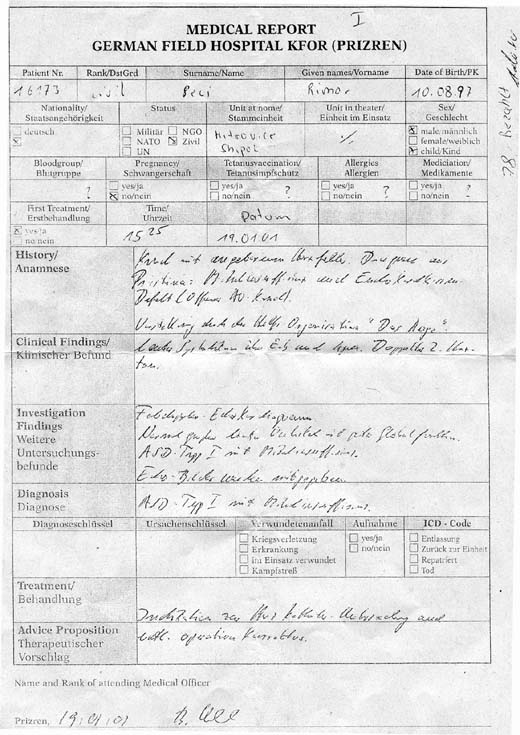 I
MEDICAL REPORT
GERMAN FIELD HOSPITAL KFOR (PRIZREN)
Patient Nr. Rank/DstGrd Surname/Name Given names/Vorname Date of Birth/PK
16173 Civil Peci 10.08.97
Nationality/ Staatsangehörigkeit
Status
Unit at home/ Stammeinheit
Unit in theater/ Einheit im Einsatz
Sex/ Geschlecht
deutsch
Militär NGO
NATO Zivil
UN
%
male/männlich
female/weiblich
child/Kind
Bloodgroup/ Blutgruppe
Pregnancy/ Schwangerschaft
Tetanusvaccination/ Tetanusimpfschutz
Allergics Allergien
Mediciation/ Medikamente
?
yes/ja
no/nein
yes/ja
no/nein ?
yes/ja
no/nein ?
yes/ja
no/nein -
First Treatment/ Erstbehandlung
Time/ Uhrzeit
Datum
yes/ja
no/nein
15 25
19.01.01
History/
Anamnese
Kind mit angeborenem Herzfehler.
Pristina: Mitralinsuffizienz und
Defekt
Vorstellung durch die Hilfs Organisation
Clinical Findings/
Klinischer Befund
Lautes Systolikum über Erb und
Investigation
Findings
Weitere
Untersuchungs-
befunde
Farbdoppler-Echokardiogramm
ASD-Typ I mit Mitralinsuffizienz.
Echo-Bilder werden mitgegeben.
Diagnosis
Diagnose
ASD-Typ I mit Mitralinsuffizienz.
Diagnoseschlüssel Ursachenschlüssel Verwundetenanfall Aufnahme ICD - Code
Kriegsverletzung
Erkrankung
im Einsatz verwundet
Kampfstreß
yes/ja
no/nein
Entlassung
Zurück zur Einheit
Repatriert
Tod
Treatment/
Behandlung
Advice Proposition
Therapeutischer
Vorschlag
Indikation zur Herzkatheter-Untersuchung und
operativen Korrektur.
Name and Rank of attending Medical Officer
Prizren, 19.01.01